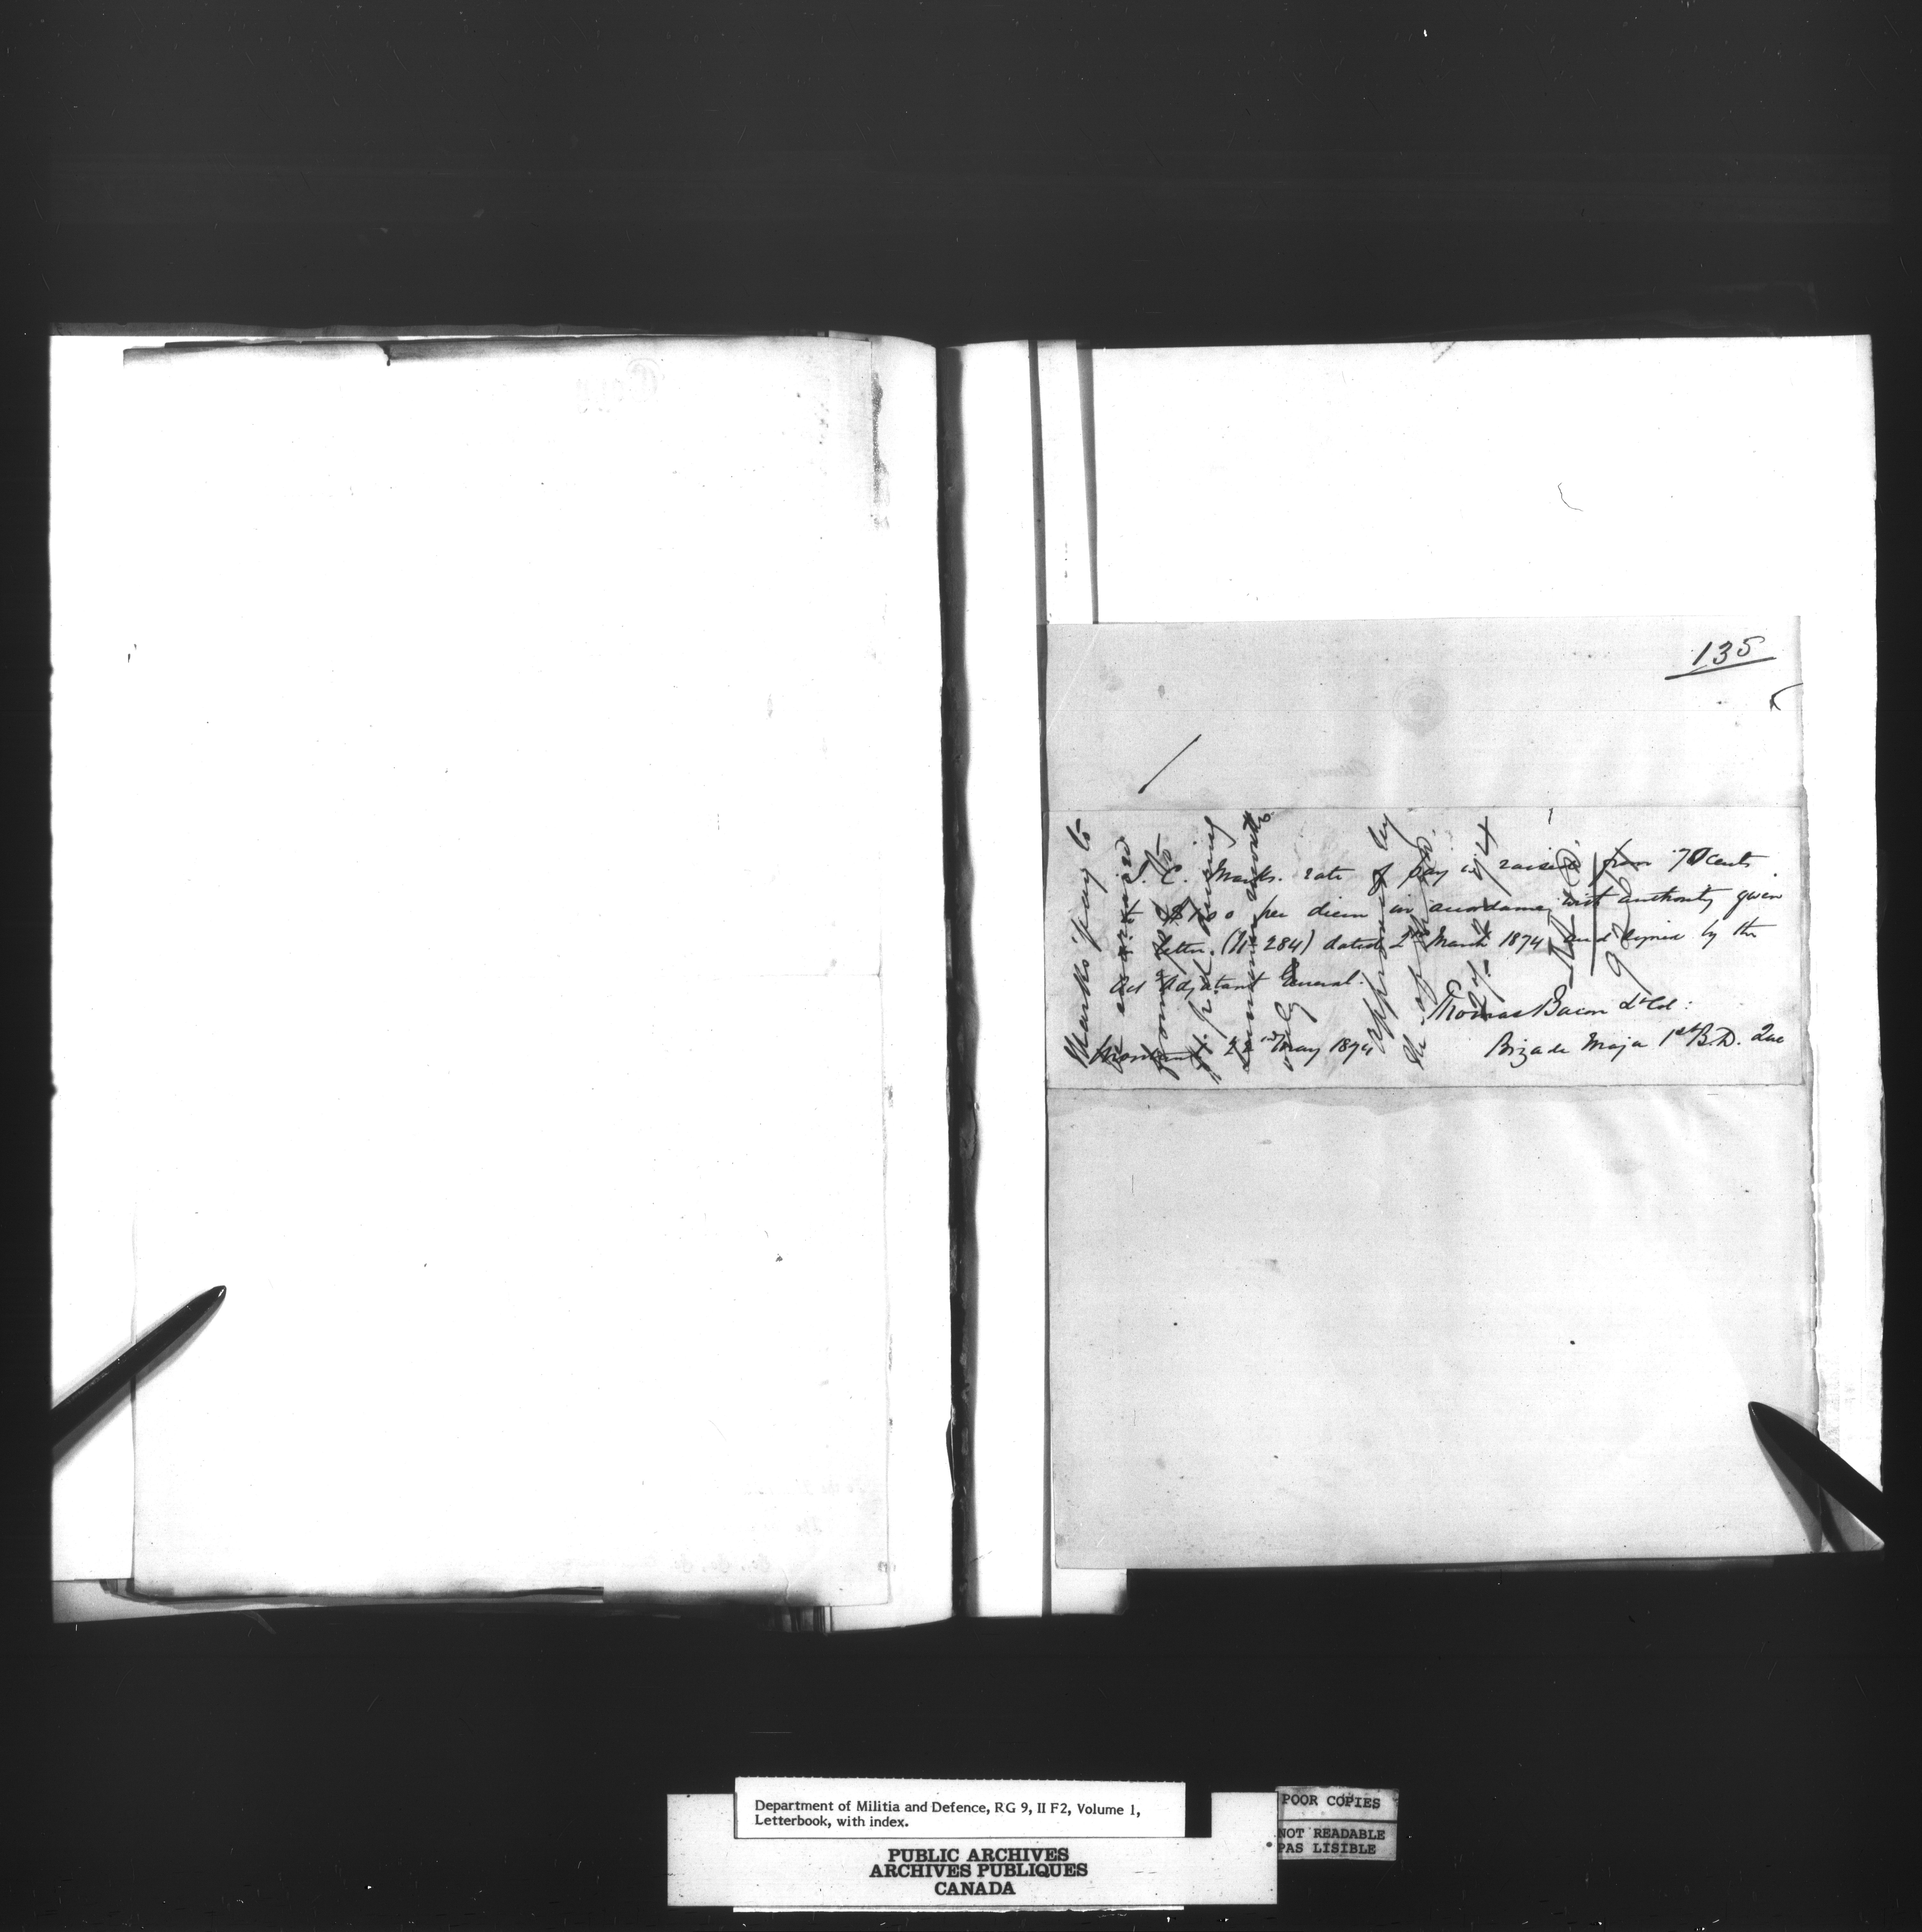 135
J. C. Marks. rate of pay is raised from 70 cents
to $1.00 per diem in accordance with authority given
letter. (No 284) dated 2nd March 1874 and signed by the
Act Adjutant General.
Thomas Bacon Lt Col:
Montreal 22nd May 1874
Brigade Major 1st B.D. Que
Marks' pay to
be
from
p. d. during
summer months
only
approved by
the
74
Department of Militia and Defence, RG 9, II F2, Volume 1,
Letterbook, with index.
PUBLIC ARCHIVES
ARCHIVES PUBLIQUES
CANADA
POOR COPIES
NOT READABLE
PAS LISIBLE